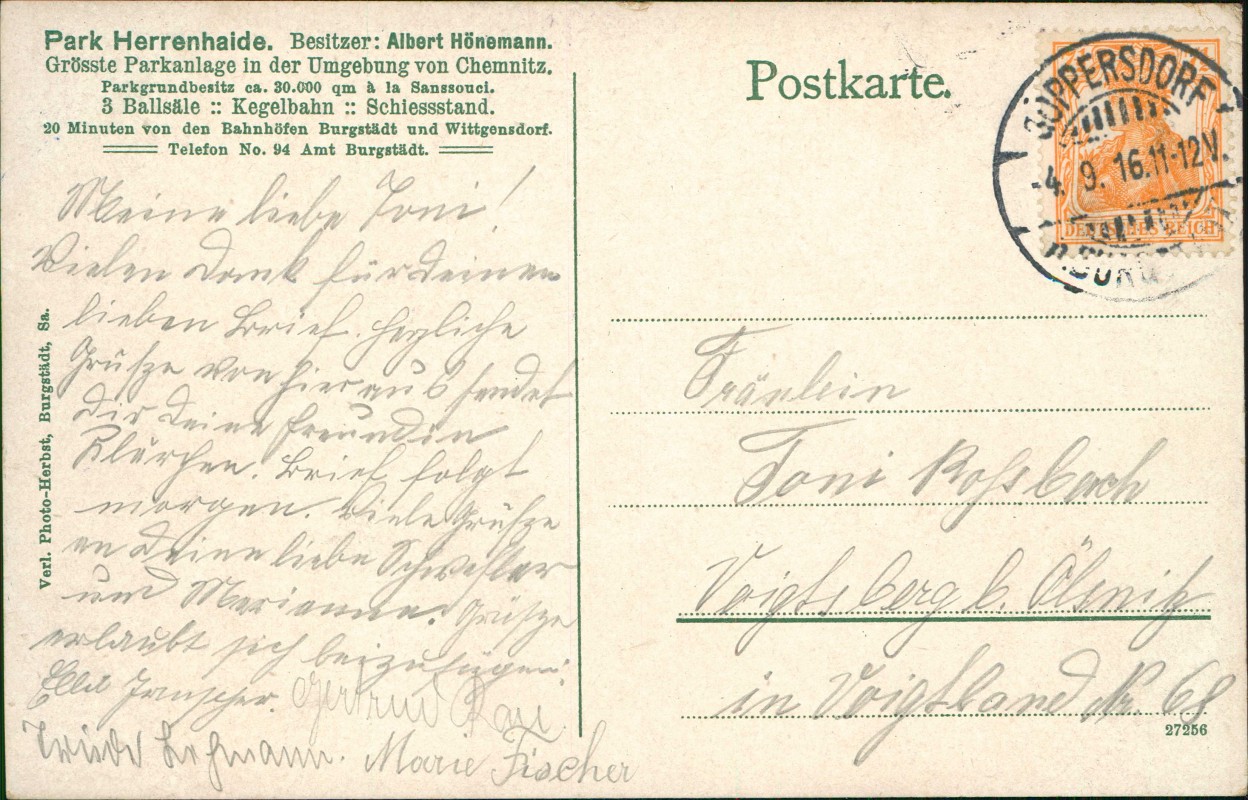 Park Herrenhaide. Besitzer: Albert Hönemann.
Grösste Parkanlage in der Umgebung von Chemnitz.
Parkgrundbesitz ca. 30.000 qm à la Sanssouci.
3 Ballsäle :: Kegelbahn :: Schiessstand.
20 Minuten von den Bahnhöfen Burgstädt und Wittgensdorf.
Telefon No. 94 Amt Burgstädt.
Meine liebe Toni!
Vielen Dank für Deinen
lieben Brief. Herzliche
Grüsze von hier aus sendet
Dir Deine Freundin
Klärchen. Brief folgt
morgen. Viele Grüsze
an Deine liebe Schwester
und Marianne. Grüsze
erlaubt sich beizufügen:
Ella
Gertrud
Marie Fischer
Verl. Photo-Herbst, Burgstädt, Sa.
Postkarte.
GÖPPERSDORF
4. 9. 16. 11-12V.
DEUTSCHES REICH
Fräulein
Toni Rossbach
Voigtsberg b. Ölsnitz
in Voigtland Nr. 68
27256